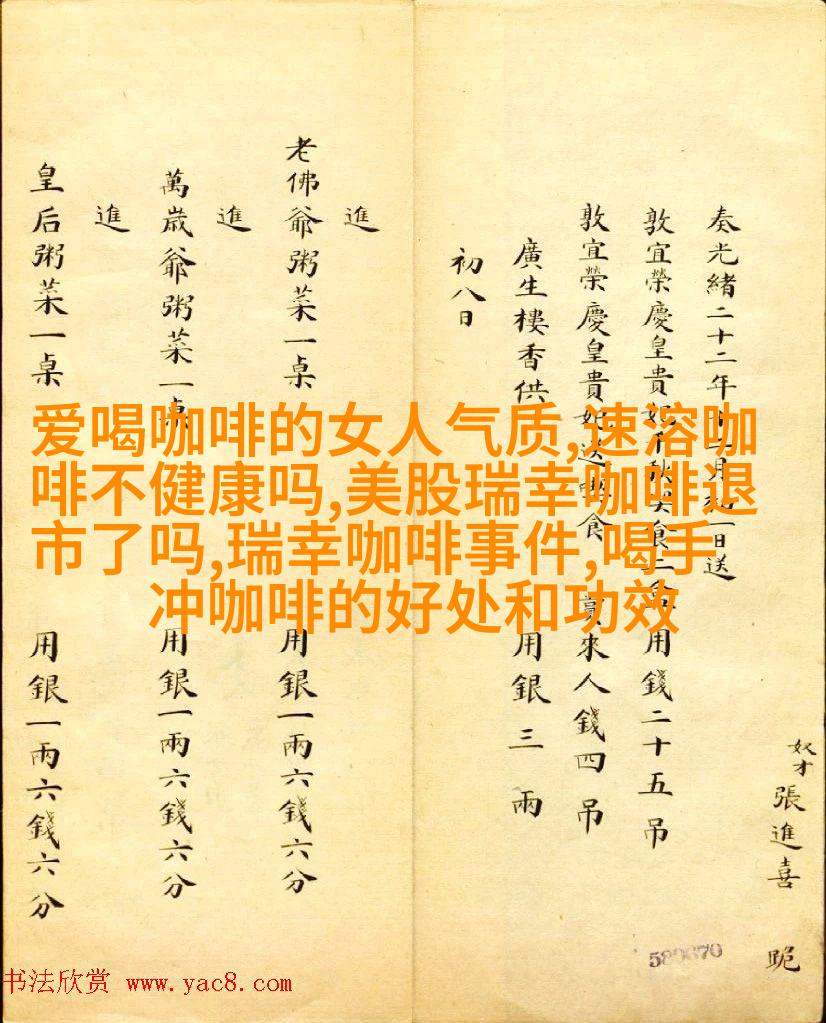 奴才張進喜 跪
奏光緒二十二年 月 一日送
敦宜榮慶皇貴妃千 食二 用錢二十五吊
敦宜榮慶皇貴妃送 食 賞來人錢四吊
廣生樓香供 用銀三兩
初八日
進
老佛爺粥菜一桌 用銀一兩六錢六分
進
萬歲爺粥菜一桌 用銀一兩六錢六分
進
皇后粥菜一桌 用銀一兩六錢六分
爱喝咖啡的女人气质,速溶咖
啡不健康吗,美股瑞幸咖啡退
市了吗,瑞幸咖啡事件,喝手
冲咖啡的好处和功效
589670
书法欣赏 www.yac8.com